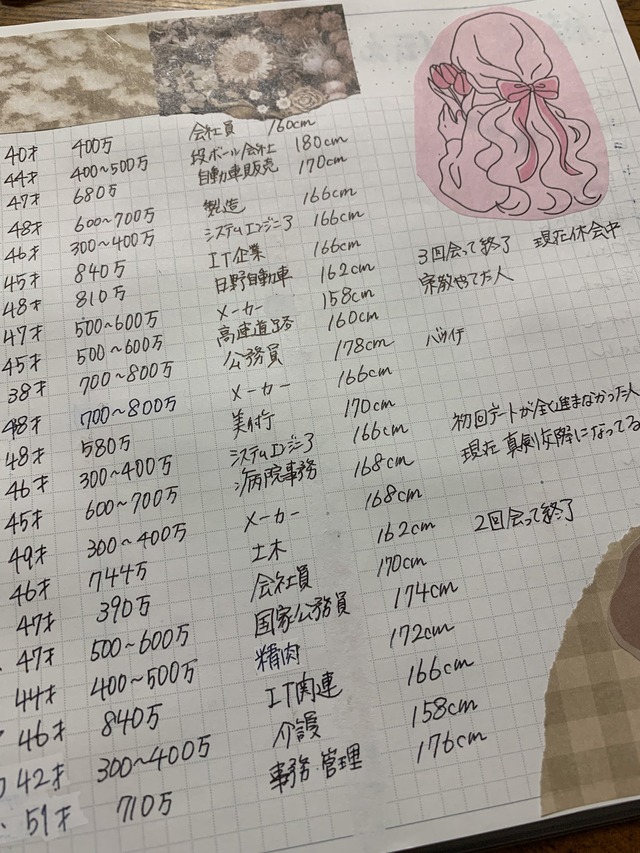 40才 400万 会社員 160cm
44才 400~500万 段ボール会社 180cm
47才 680万 自動車販売 170cm
48才 600~700万 製造 166cm
46才 300~400万 システムエンジニア 166cm
45才 840万 IT企業 166cm
48才 810万 日野自動車 162cm 3回会って終了 現在休会中
47才 500~600万 メーカー 158cm 宗教やてた人
45才 500~600万 高速道路 160cm
38才 700~800万 公務員 178cm バツイチ
48才 700~800万 メーカー 166cm
48才 580万 170cm
46才 300~400万 システムエンジニア 166cm 初回デートが全く進まなかった人
45才 600~700万 病院事務 168cm 現在 真剣交際になってる
49才 300~400万 メーカー 168cm
46才 744万 土木 162cm 2回会って終了
47才 390万 会社員 170cm
47才 500~600万 国家公務員 174cm
44才 400~500万 精肉 172cm
46才 840万 IT関連 166cm
42才 300~400万 介護 158cm
51才 710万 事務.管理 176cm